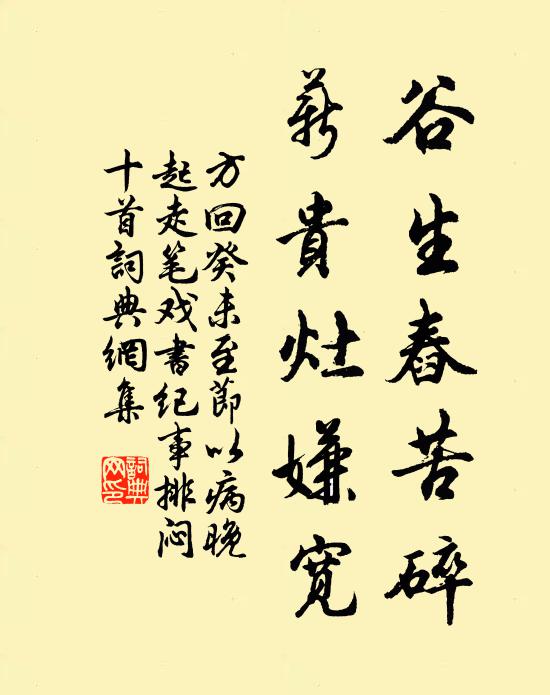 谷生舂苦碎
薪貴灶嫌寬
方回癸未至節以病晚
起走笔戏書纪事排闷
十首詞典網集
詞典
网印